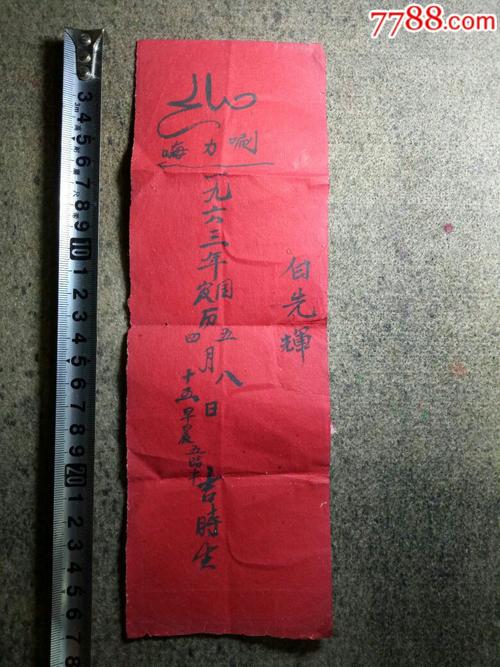 7788.com
白先輝
一九六三年
国
农
历
五
四
月八日
十五早晨五點半
吉時生
3 4 5 6 7 8 9 10 1 2 3 4 5 6 7 8 9 20 1 2 3 4 5